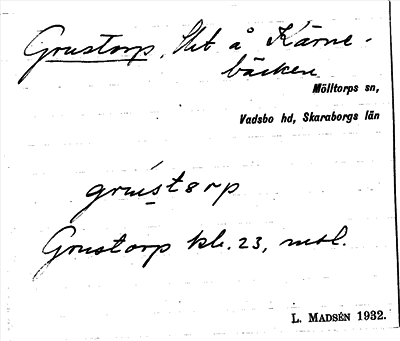 Grustorp, Utt å Kärne-
bäcken
Mölltorps sn,
Vadsbo hd, Skaraborgs län
grústɜrp
Grustorp kh. 23, msl.
L. MADSÉN 1932.